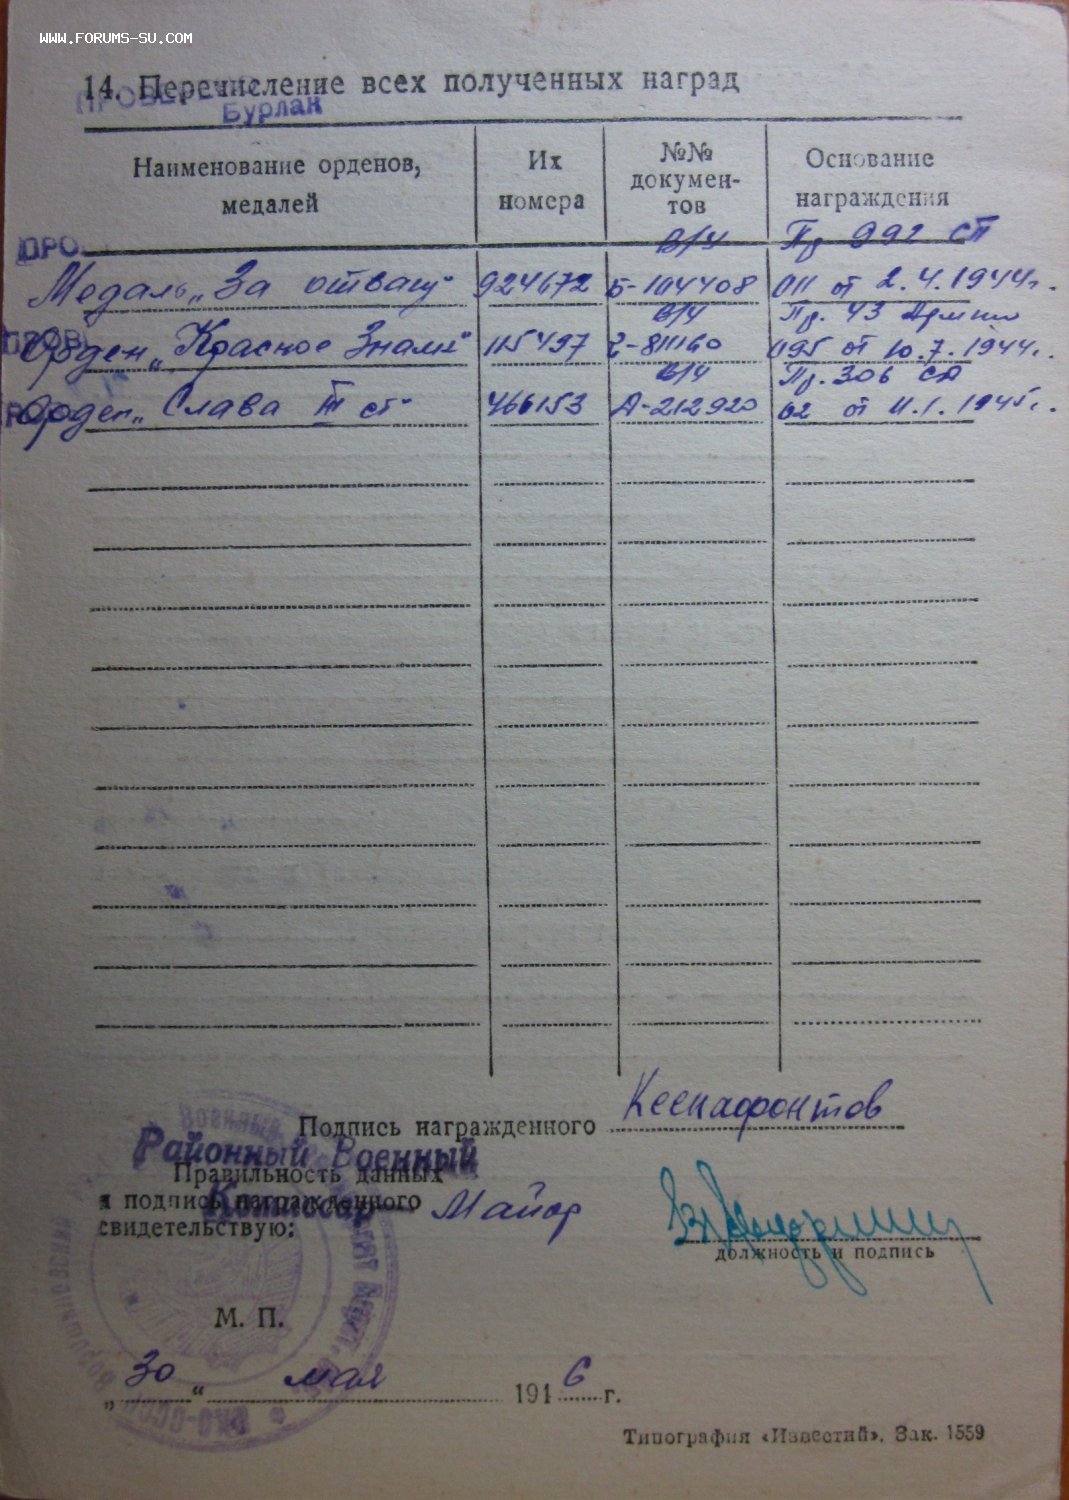 WWW.FORUMS-SU.COM
14. Перечисление всех полученных наград
Бурлан
Наименование орденов, медалей
Их номера
№№ докумен-
тов
Основание награждения
ПРО
В/ч Пр 992 СП
Медаль „За отвагу" 924672 Б-104408 011 от 2.4.1944г.
В/ч Пр. 43 Армии
Орден „Красное Знамя" 115497 811160 095 от 10.7.1944г.
В/ч Пр. 306 СД
Орден „Слава III ст" 466153 А-212920 02 от 11.1.1945г.
Подпись награжденного Ксенафонтов
Районный Военный
Правильность данных
и подпись награжденного
Комиссар Майор
свидетельствую:
должность и подпись
М. П.
„30“ мая 1916 г.
Типография «Известий». Зак. 1559